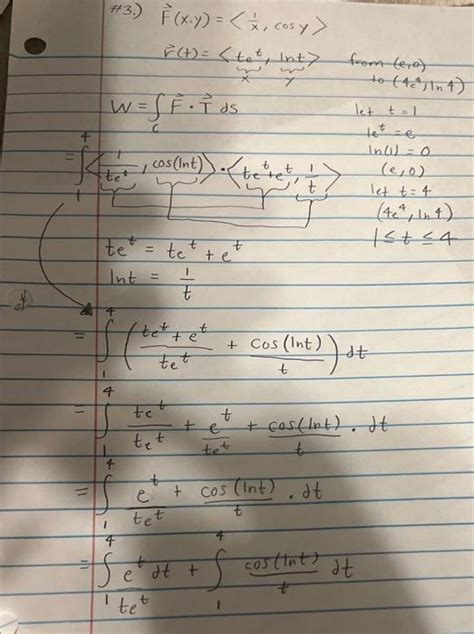 #3.) F⃗(x,y) = ⟨1/x, cos y⟩
r⃗(t) = ⟨te^t, ln t⟩ from (e,0)
x y to (4e^4, ln 4)
W = ∫_C F⃗ · T⃗ ds
let t = 1
1e^t = e
ln(1) = 0
(e,0)
let t = 4
(4e^4, ln 4)
1 ≤ t ≤ 4
= ∫_1^4 ⟨1/te^t, cos(ln t)⟩ · ⟨te^t + e^t, 1/t⟩
te^t = te^t + e^t
ln t = 1/t
= ∫_1^4 ((te^t + e^t)/te^t + cos(ln t)/t) dt
= ∫_1^4 te^t/te^t + e^t/te^t + cos(ln t)/t · dt
= ∫_1^4 e^t/te^t + cos(ln t)/t · dt
= ∫_1^4 e^t/te^t dt + ∫_1^4 cos(ln t)/t dt